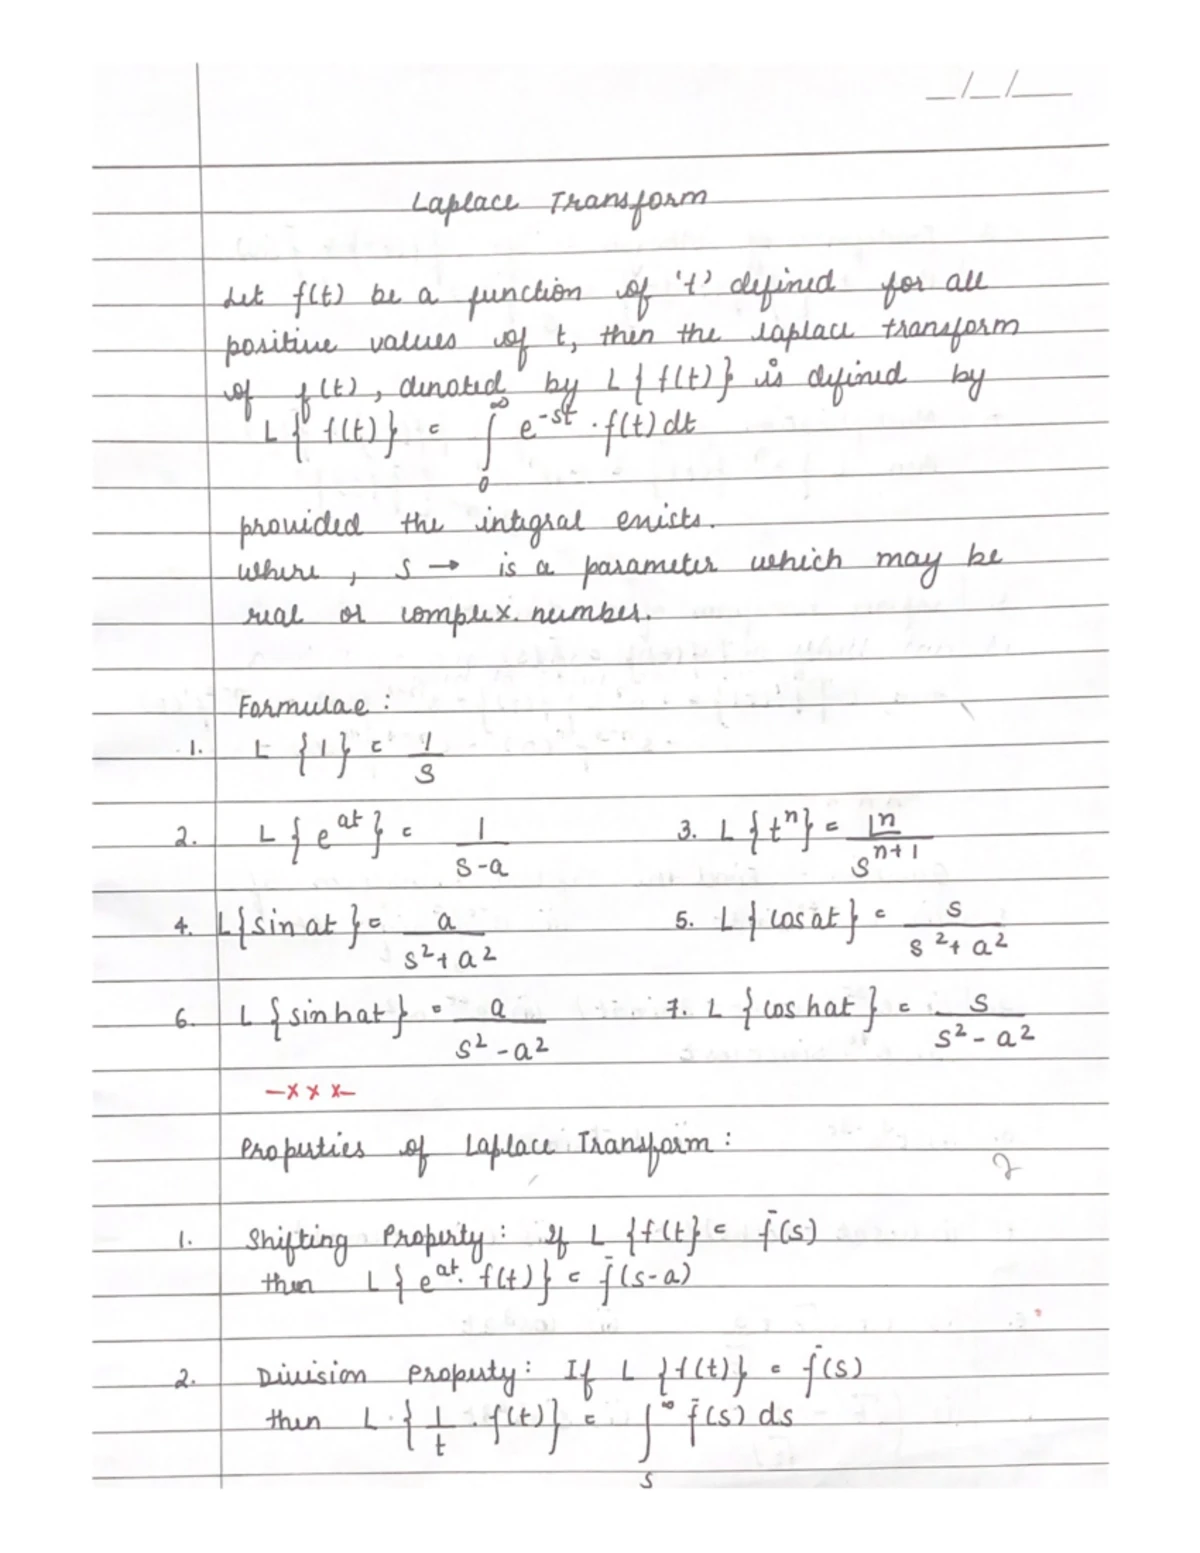 _/_/__
Laplace Transform
Let f(t) be a function of 't' defined for all
positive values of t, then the laplace transform
of f(t), denoted by L{f(t)} is defined by
L{f(t)} = ∫₀^∞ e^-st · f(t) dt
provided the integral exists.
where, s → is a parameter which may be
real or complex. number.
Formulae :
1. L {1} = 1/s
2. L{e^at} = 1/(s-a) 3. L{t^n} = |n/s^(n+1)
4. L{sin at} = a/(s²+a²) 5. L{cos at} = s/(s²+a²)
6. L{sin hat} = a/(s²-a²) 7. L{cos hat} = s/(s²-a²)
—x x x—
Properties of Laplace Transform :
1. Shifting Property : If L {f(t} = f̄(s)
then L{e^at. f(t)} = f̄(s-a)
2. Division Property : If L {f(t)} = f̄(s)
then L·{1/t · f(t)} = ∫ₛ^∞ f̄(s) ds